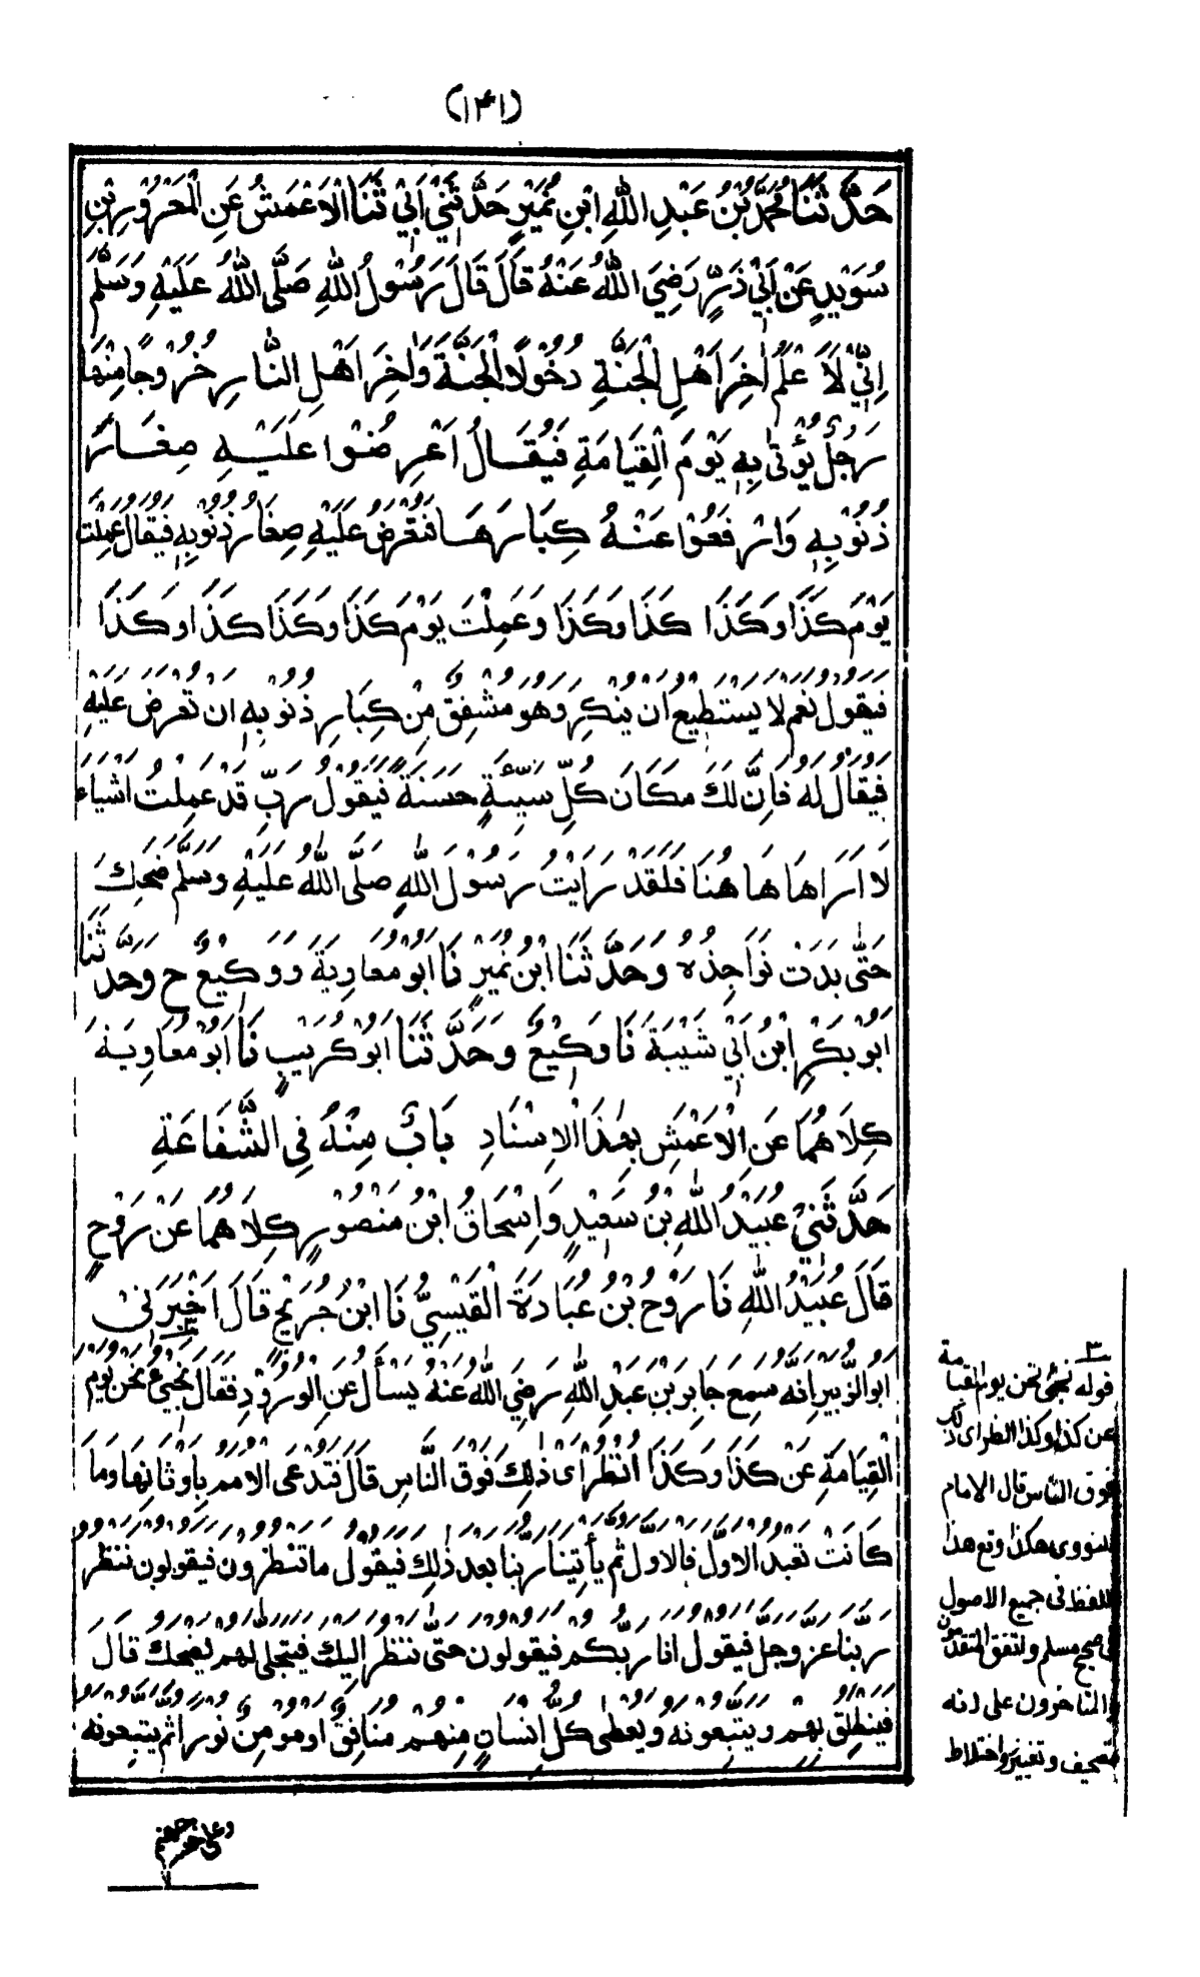 (۱۴۱)
حَدَّثَنَا مُحَمَّدُ بْنُ عَبْدِ اللّٰهِ ابْنِ نُمَيْرٍ حَدَّثَنِيْ اَبِيْ ثَنَا الْاَعْمَشُ عَنِ الْمَعْرُوْرِ بْنِ
سُوَيْدٍ عَنْ اَبِيْ ذَرٍّ رَضِيَ اللّٰهُ عَنْهُ قَالَ قَالَ رَسُوْلُ اللّٰهِ صَلَّى اللّٰهُ عَلَيْهِ وَسَلَّمَ
اِنِّيْ لَاَعْلَمُ اٰخِرَ اَهْلِ الْجَنَّةِ دُخُوْلًا الْجَنَّةَ وَاٰخِرَ اَهْلِ النَّارِ خُرُوْجًا مِنْهَا
رَجُلٌ يُؤْتٰى بِهٖ يَوْمَ الْقِيَامَةِ فَيُقَالُ اعْرِضُوْا عَلَيْهِ صِغَارَ
ذُنُوْبِهٖ وَارْفَعُوْا عَنْهُ كِبَارَهَا فَتُعْرَضُ عَلَيْهِ صِغَارُ ذُنُوْبِهٖ فَيُقَالُ عَمِلْتَ
يَوْمَ كَذَا وَكَذَا كَذَا وَكَذَا وَعَمِلْتَ يَوْمَ كَذَا وَكَذَا كَذَا وَكَذَا
فَيَقُوْلُ نَعَمْ لَا يَسْتَطِيْعُ اَنْ يُنْكِرَ وَهُوَ مُشْفِقٌ مِنْ كِبَارِ ذُنُوْبِهٖ اَنْ تُعْرَضَ عَلَيْهِ
فَيُقَالُ لَهُ فَاِنَّ لَكَ مَكَانَ كُلِّ سَيِّئَةٍ حَسَنَةً فَيَقُوْلُ رَبِّ قَدْ عَمِلْتُ اَشْيَاءَ
لَا اَرَاهَا هَا هُنَا فَلَقَدْ رَاَيْتُ رَسُوْلَ اللّٰهِ صَلَّى اللّٰهُ عَلَيْهِ وَسَلَّمَ ضَحِكَ
حَتّٰى بَدَتْ نَوَاجِذُهُ وَحَدَّثَنَا ابْنُ نُمَيْرٍ نَا اَبُوْ مُعَاوِيَةَ وَوَكِيْعٌ ح وَحَدَّثَنَا
اَبُوْ بَكْرِ ابْنُ اَبِيْ شَيْبَةَ نَا وَكِيْعٌ وَحَدَّثَنَا اَبُوْ كُرَيْبٍ نَا اَبُوْ مُعَاوِيَةَ
كِلَاهُمَا عَنِ الْاَعْمَشِ بِهٰذَا الْاِسْنَادِ بَابٌ مِنْهُ فِي الشَّفَاعَةِ
حَدَّثَنِيْ عُبَيْدُ اللّٰهِ بْنُ سَعِيْدٍ وَاِسْحَاقُ ابْنُ مَنْصُوْرٍ كِلَاهُمَا عَنْ رَوْحٍ
قَالَ عُبَيْدُ اللّٰهِ نَا رَوْحُ بْنُ عُبَادَةَ الْقَيْسِيُّ نَا ابْنُ جُرَيْجٍ قَالَ اَخْبَرَنِيْ
اَبُو الزُّبَيْرِ اَنَّهُ سَمِعَ جَابِرَ بْنَ عَبْدِ اللّٰهِ رَضِيَ اللّٰهُ عَنْهُ يُسْأَلُ عَنِ الْوُرُوْدِ فَقَالَ نَجِيْءُ نَحْنُ يَوْمَ
الْقِيَامَةِ عَنْ كَذَا وَكَذَا اُنْظُرْ اَىْ ذٰلِكَ فَوْقَ النَّاسِ قَالَ فَتُدْعَى الْاُمَمُ بِاَوْثَانِهَا وَمَا
كَانَتْ تَعْبُدُ الْاَوَّلُ فَالْاَوَّلُ ثُمَّ يَأْتِيْنَا رَبُّنَا بَعْدَ ذٰلِكَ فَيَقُوْلُ مَا تَنْظُرُوْنَ فَيَقُوْلُوْنَ نَنْظُرُ
رَبَّنَا عَزَّ وَجَلَّ فَيَقُوْلُ اَنَا رَبُّكُمْ فَيَقُوْلُوْنَ حَتّٰى نَنْظُرَ اِلَيْكَ فَيَتَجَلّٰى لَهُمْ يَضْحَكُ قَالَ
فَيَنْطَلِقُ بِهِمْ وَيَتَّبِعُوْنَهُ وَيُعْطٰى كُلُّ اِنْسَانٍ مِنْهُمْ مُنَافِقٌ اَوْ مُؤْمِنٌ نُوْرًا ثُمَّ يَتَّبِعُوْنَهُ
وعلى جسر جهنم
٣
قوله نجئ نحن يوم القيامة
عن كذا وكذا انظر اى ذلك
فوق الناس قال الامام
النووى هكذا وقع هذا
اللفظ فى جميع الاصول
من صحيح مسلم واتفق المتقدمون
والمتاخرون على انه
تصحيف وتغيير واختلاط